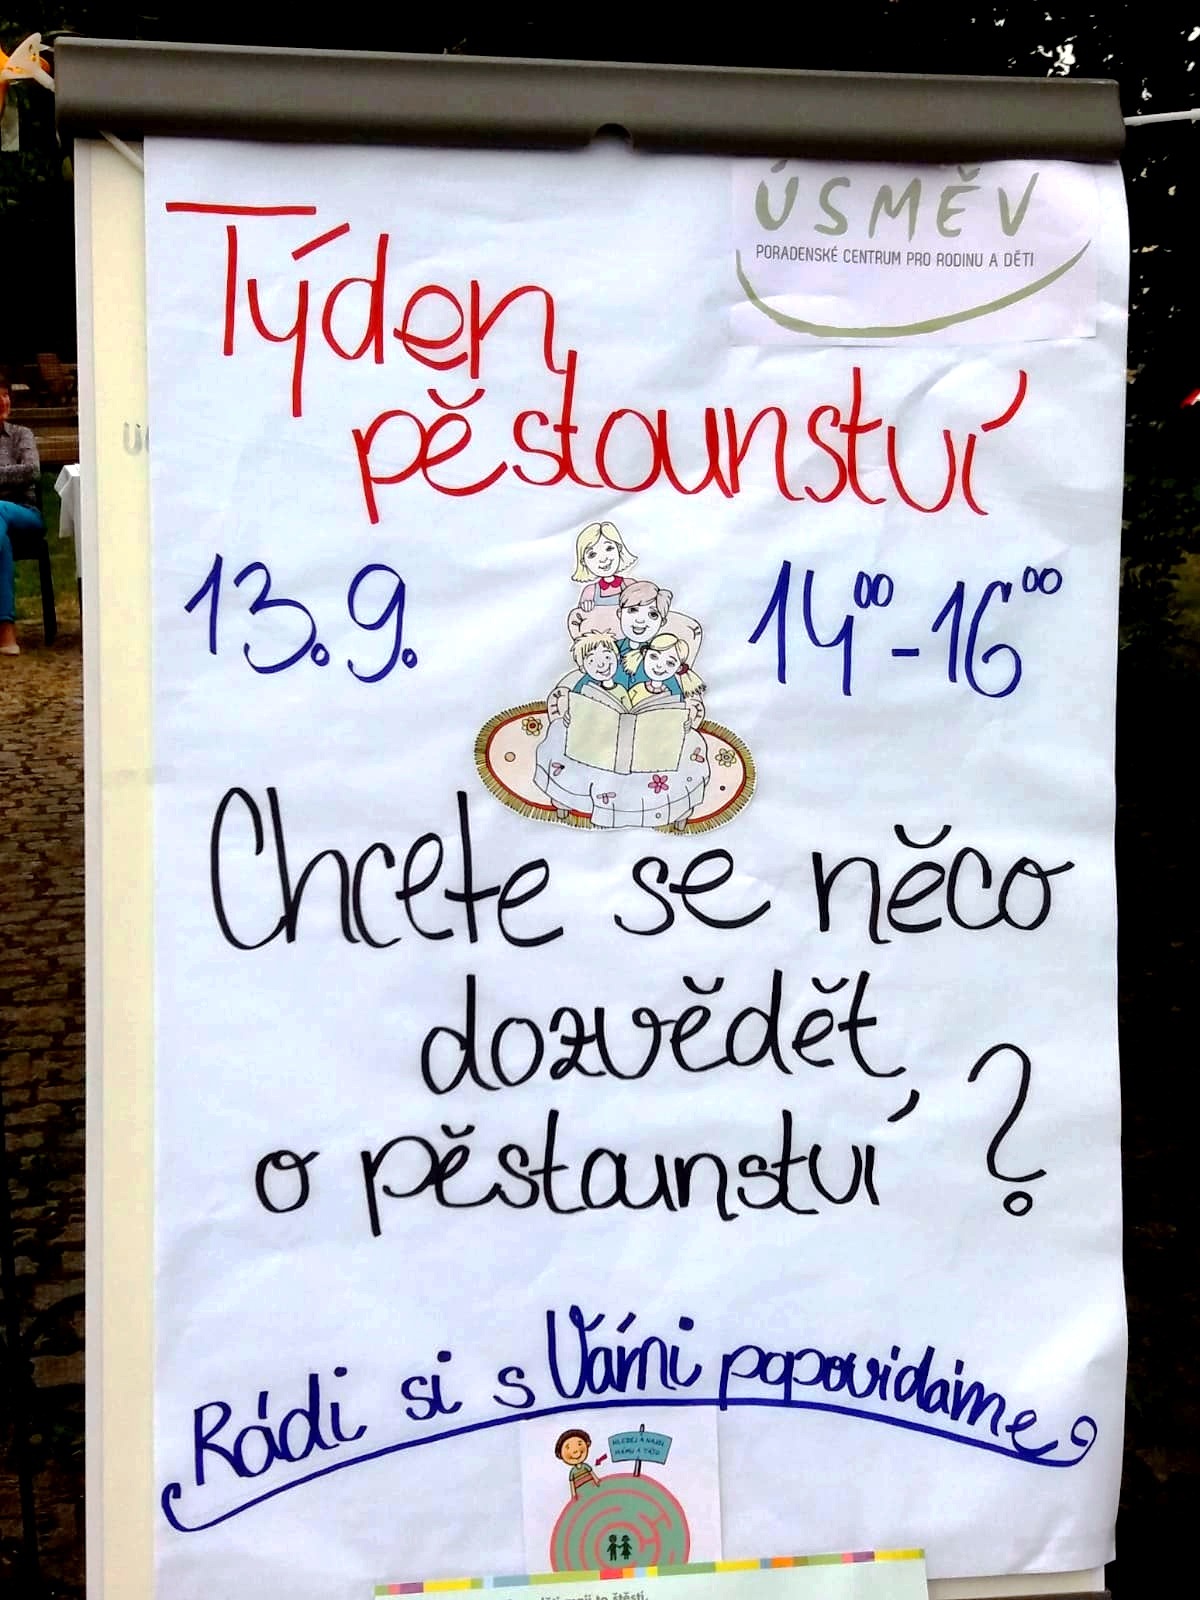 ÚSMĚV
PORADENSKÉ CENTRUM PRO RODINU A DĚTI
Týden
pěstounství
13.9. 14⁰⁰-16⁰⁰
Chcete se něco
dozvědět
o pěstounství?
Rádi si s Vámi popovídáme
HLEDEJ A NAJDI
MÁMU A TÁTU
mají to štěstí,